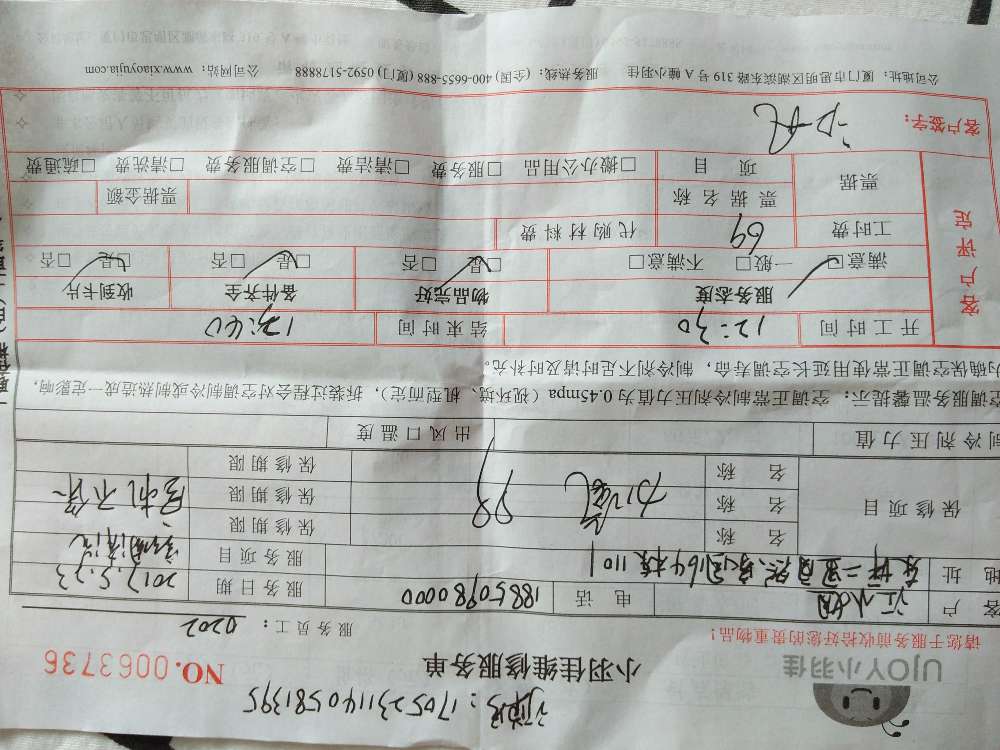 1705231140581395
UJOY小羽佳
小羽佳维修服务单
NO. 0063736
请您于服务前收拾好您的贵重物品!
服务员工: 0202
客户 江小姐 电话 18850980000 服务日期 2017.5.23
地址 164栋1101 服务项目 空调清洗
保修项目 名称 保修期限
名称 加氟 98 保修期限
名称 保修期限
制冷剂压力值 出风口温度
空调服务温馨提示: 空调正常制冷剂压力值为0.45mpa (视环境、机型而定), 拆装过程会对空调制冷或制热造成一定影响,
为确保空调正常使用延长空调寿命, 制冷剂不足时请及时补充。
客户评定
开工时间 12:30 结束时间 13:40
服务态度 物品完好 备件齐全 收到卡片
满意□ 一般□ 不满意□ □是 □否 □是 □否 □是 □否
工时费 69 代购材料费
票据 票据名称 票据金额
项目 □搬办公用品 □服务费 □清洁费 □空调服务费 □清洗费 □疏通费
客户签字:
公司地址: 厦门市思明区湖滨东路319号A幢小羽佳 服务热线: (全国) 400-6655-888 (厦门) 0592-5178888 公司网站: www.xiaoyujia.com